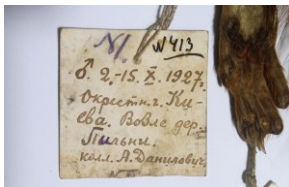 N. N 413
♂. 2.-15. X. 1927.
Окрестн. г. Ки-
ева. Возле дер.
Пильни.
колл. А. Данилович